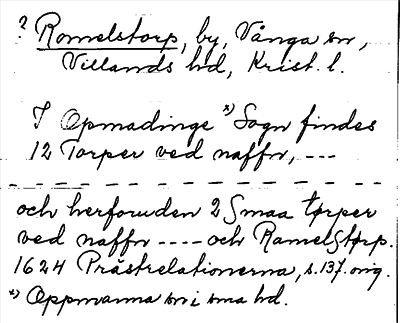 ? Romelstorp, by, Vånga sn,
Villands hd, Krist. l.
I Opmadinge *) Sogn findes
12 Torper ved naffn, ---
och herforuden 2 Smaa tørper
ved naffn ---- och RamelStørp.
1624 Prästrelationerna, s. 137. orig.
*) Oppmanna sn i sma hd.